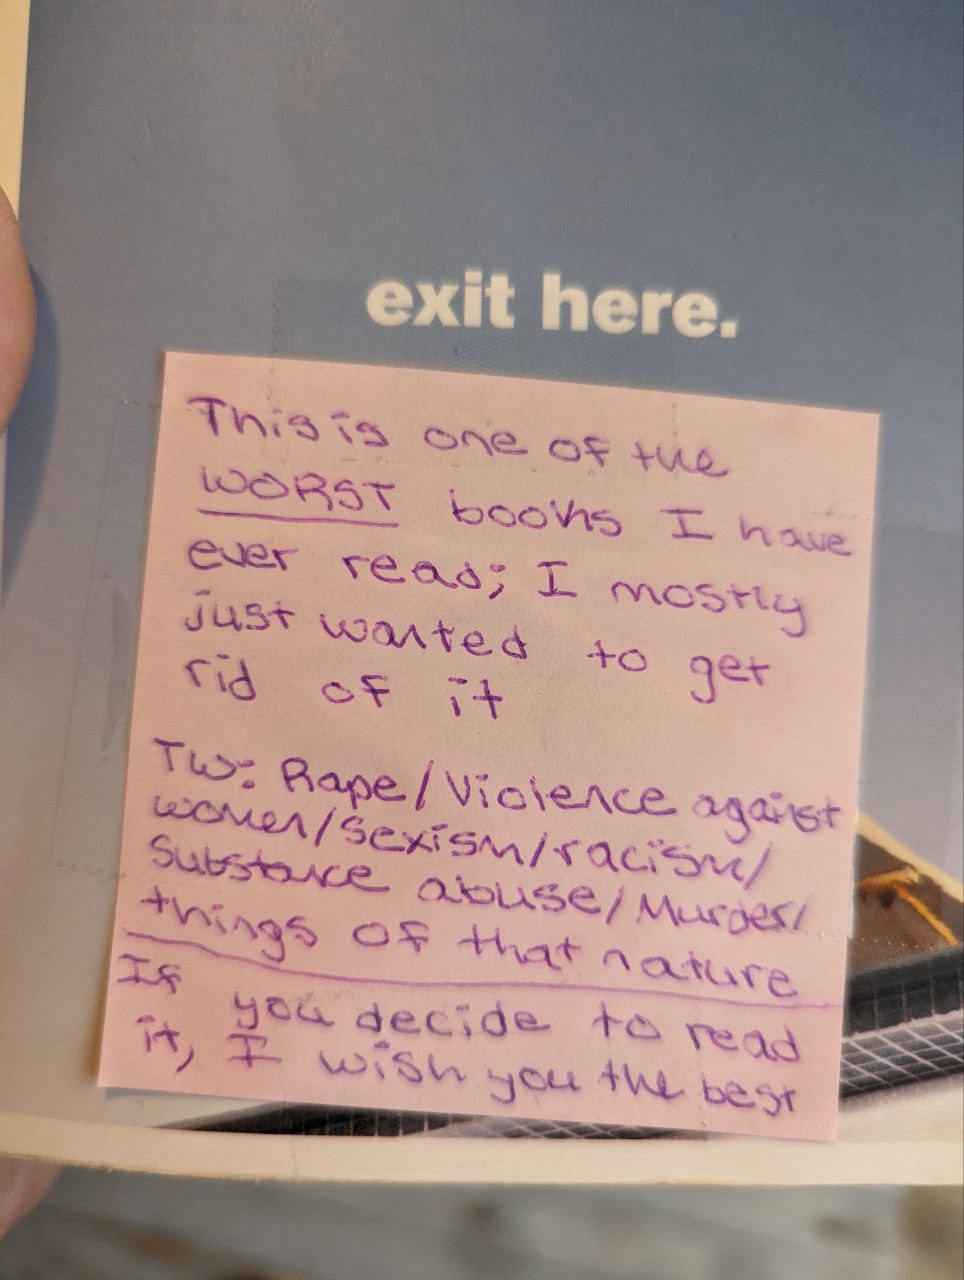 exit here.
This is one of the
WORST books I have
ever read; I mostly
just wanted to get
rid of it
TW: Rape/Violence against
women/Sexism/racism/
Substance abuse/Murder/
things of that nature
If you decide to read
it, I wish you the best